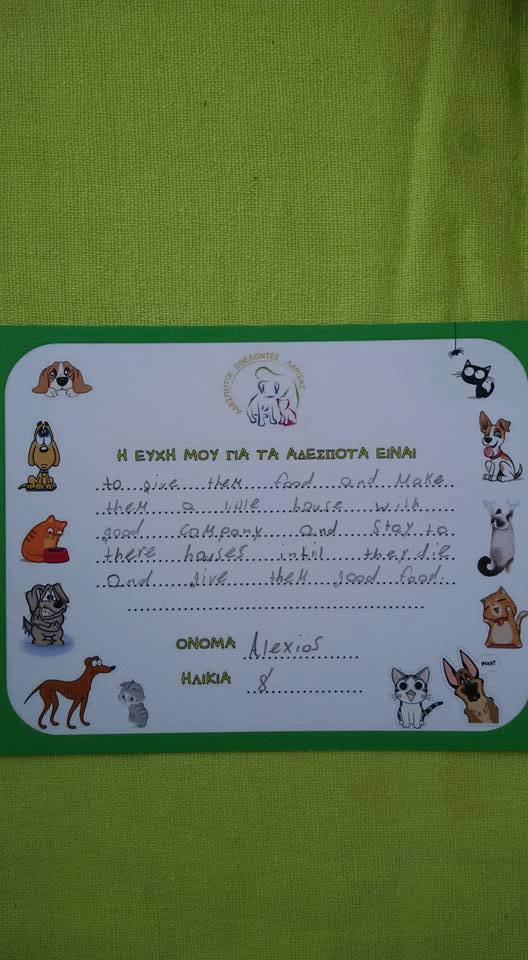 ΑΔΕΣΠΟΤΟΙ ΕΘΕΛΟΝΤΕΣ ΛΑΡΙΣΑΣ
Η ΕΥΧΗ ΜΟΥ ΓΙΑ ΤΑ ΑΔΕΣΠΟΤΑ ΕΙΝΑΙ
to give them food and Make
them a little house with
good company and stay to
there houses intil they die
and give them good food.
ΟΝΟΜΑ Alexios
ΗΛΙΚΙΑ 8